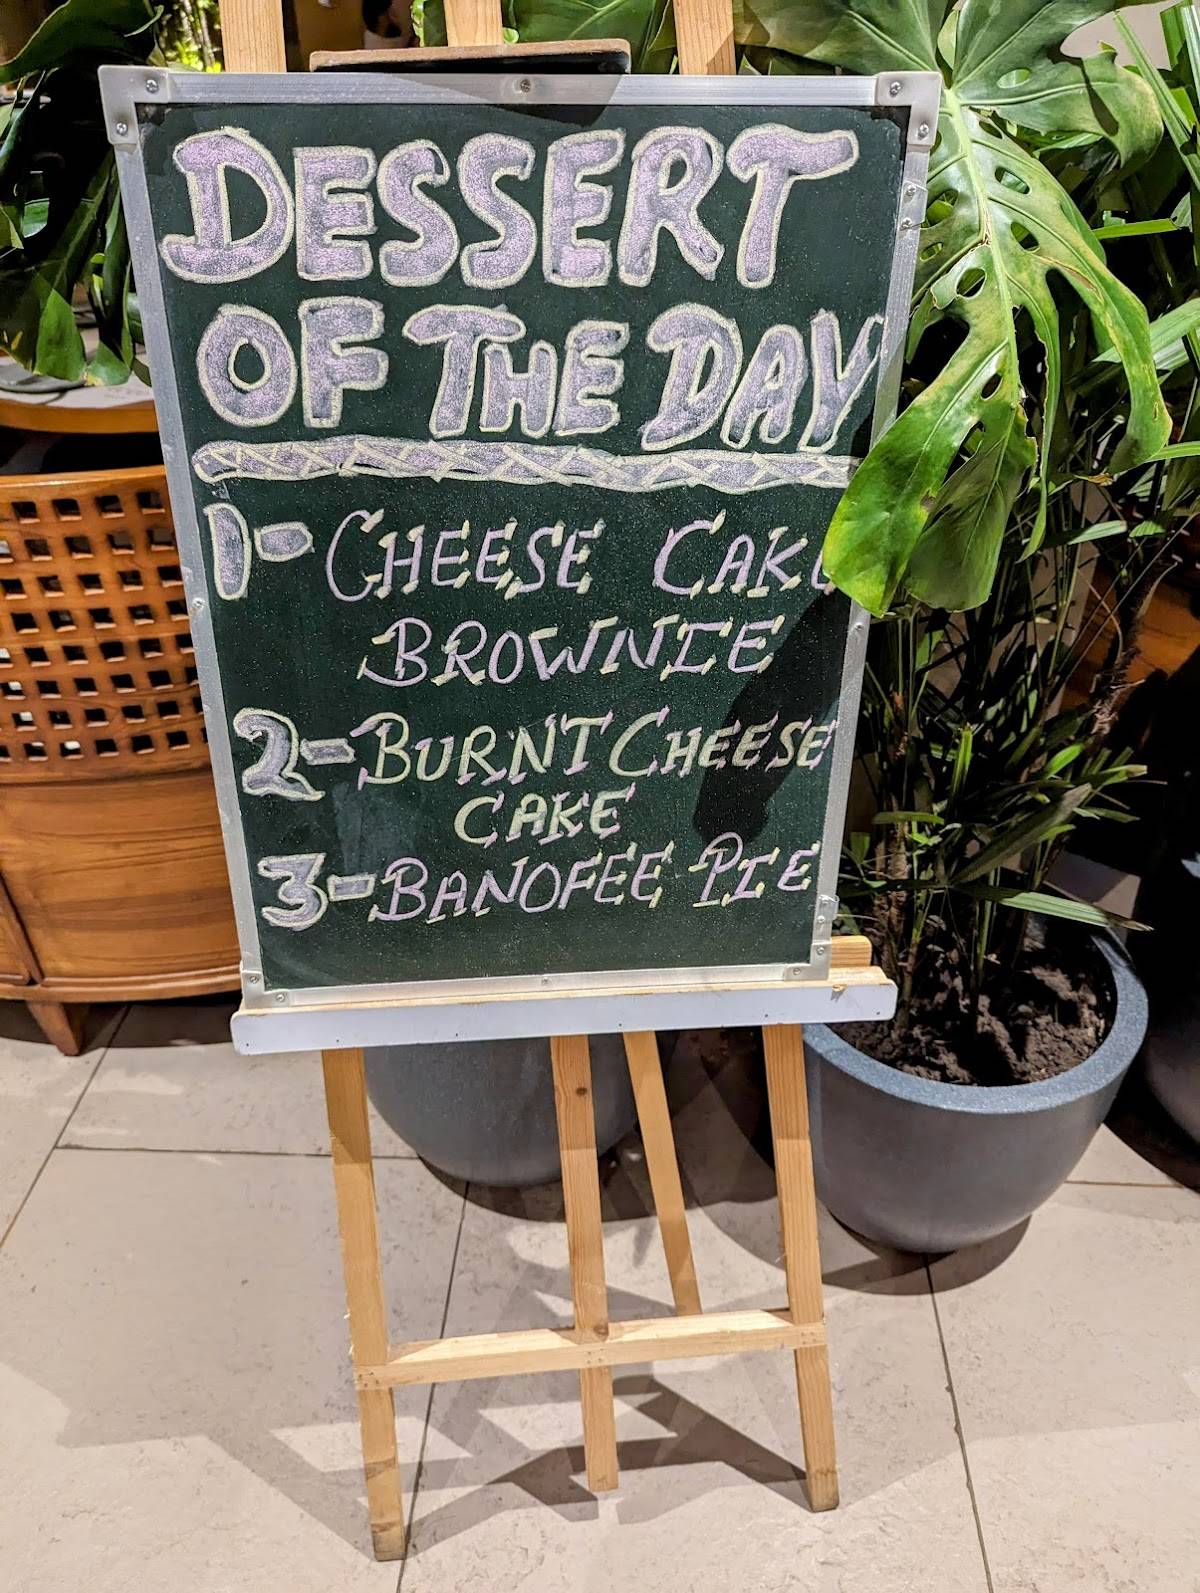 DESSERT
OF THE DAY
1- CHEESE CAKE
BROWNIE
2- BURNT CHEESE
CAKE
3- BANOFEE PIE